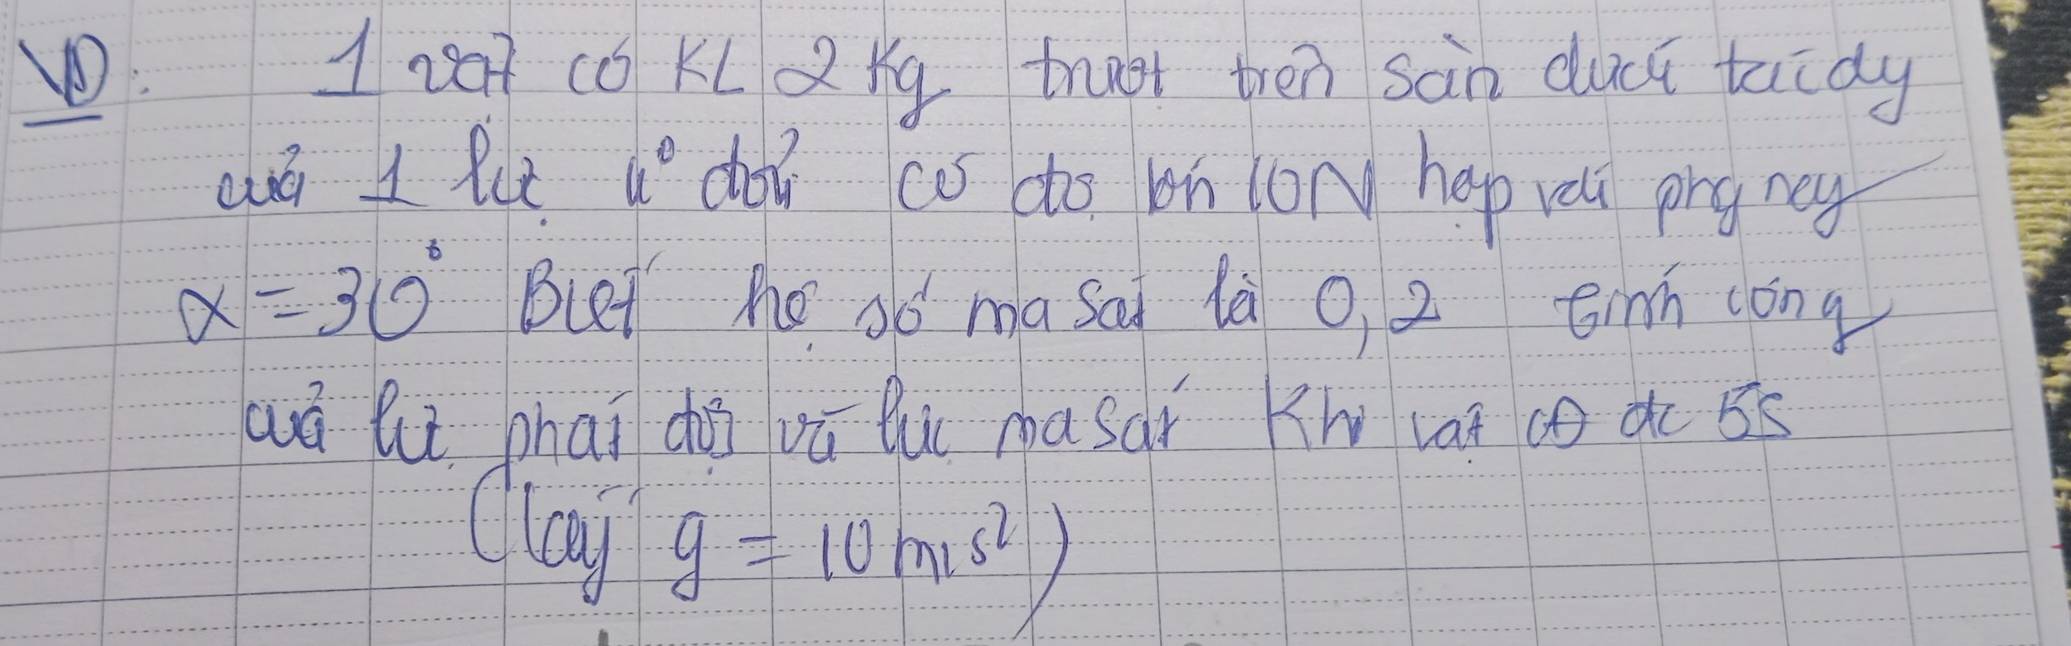 VD: 1 vật có KL 2 Kg trượt trên sàn dưới tác dụng
của 1 lực k° đổi có độ lớn 10N hợp với phg ngang
α = 30° Biết hệ số ma sát là 0,2 tính công
của lực phát động và lực ma sát Khi vật CĐ đc 5s
(lấy g = 10 m/s²)